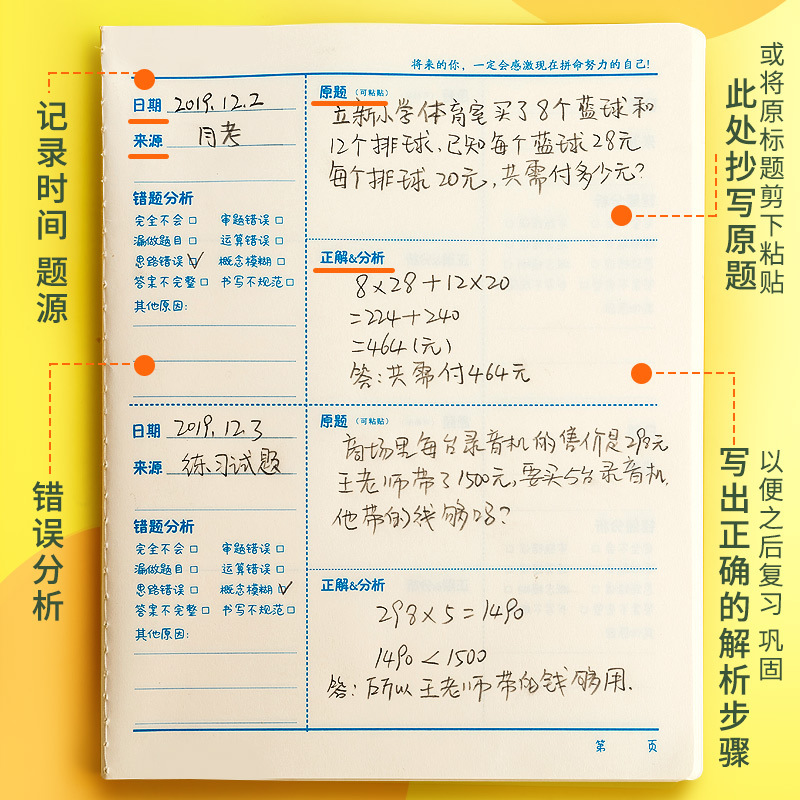 将来的你，一定会感激现在拼命努力的自己!
日期 2019.12.2
来源 月考
错题分析
完全不会 审题错误
漏做题目 运算错误
思路错误 概念模糊
答案不完整 书写不规范
其他原因:
原题 (可粘贴)
立新小学体育室买了8个蓝球和
12个排球,已知每个蓝球28元
每个排球20元,共需付多少元?
正解&分析
8×28+12×20
=224+240
=464(元)
答:共需付464元
日期 2019.12.3
来源 练习试题
错题分析
完全不会 审题错误
漏做题目 运算错误
思路错误 概念模糊
答案不完整 书写不规范
其他原因:
原题 (可粘贴)
商场里每台录音机的售价是298元
王老师带了1500元,要买5台录音机,
他带的钱够吗?
正解&分析
298×5=1490
1490<1500
答:所以王老师带的钱够用.
第 页
记录时间 题源
错误分析
或将原标题剪下粘贴
此处抄写原题
以便之后复习 巩固
写出正确的解析步骤